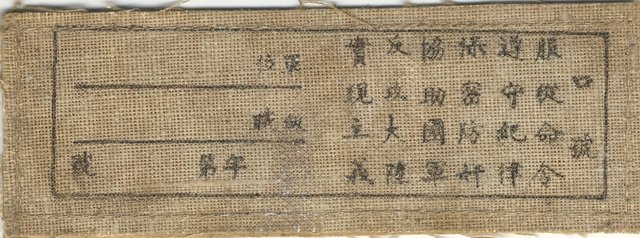 口號
服從命令
遵守紀律
保密防奸
協助國軍
反攻大陸
實現主義
單位
級職
年第　號